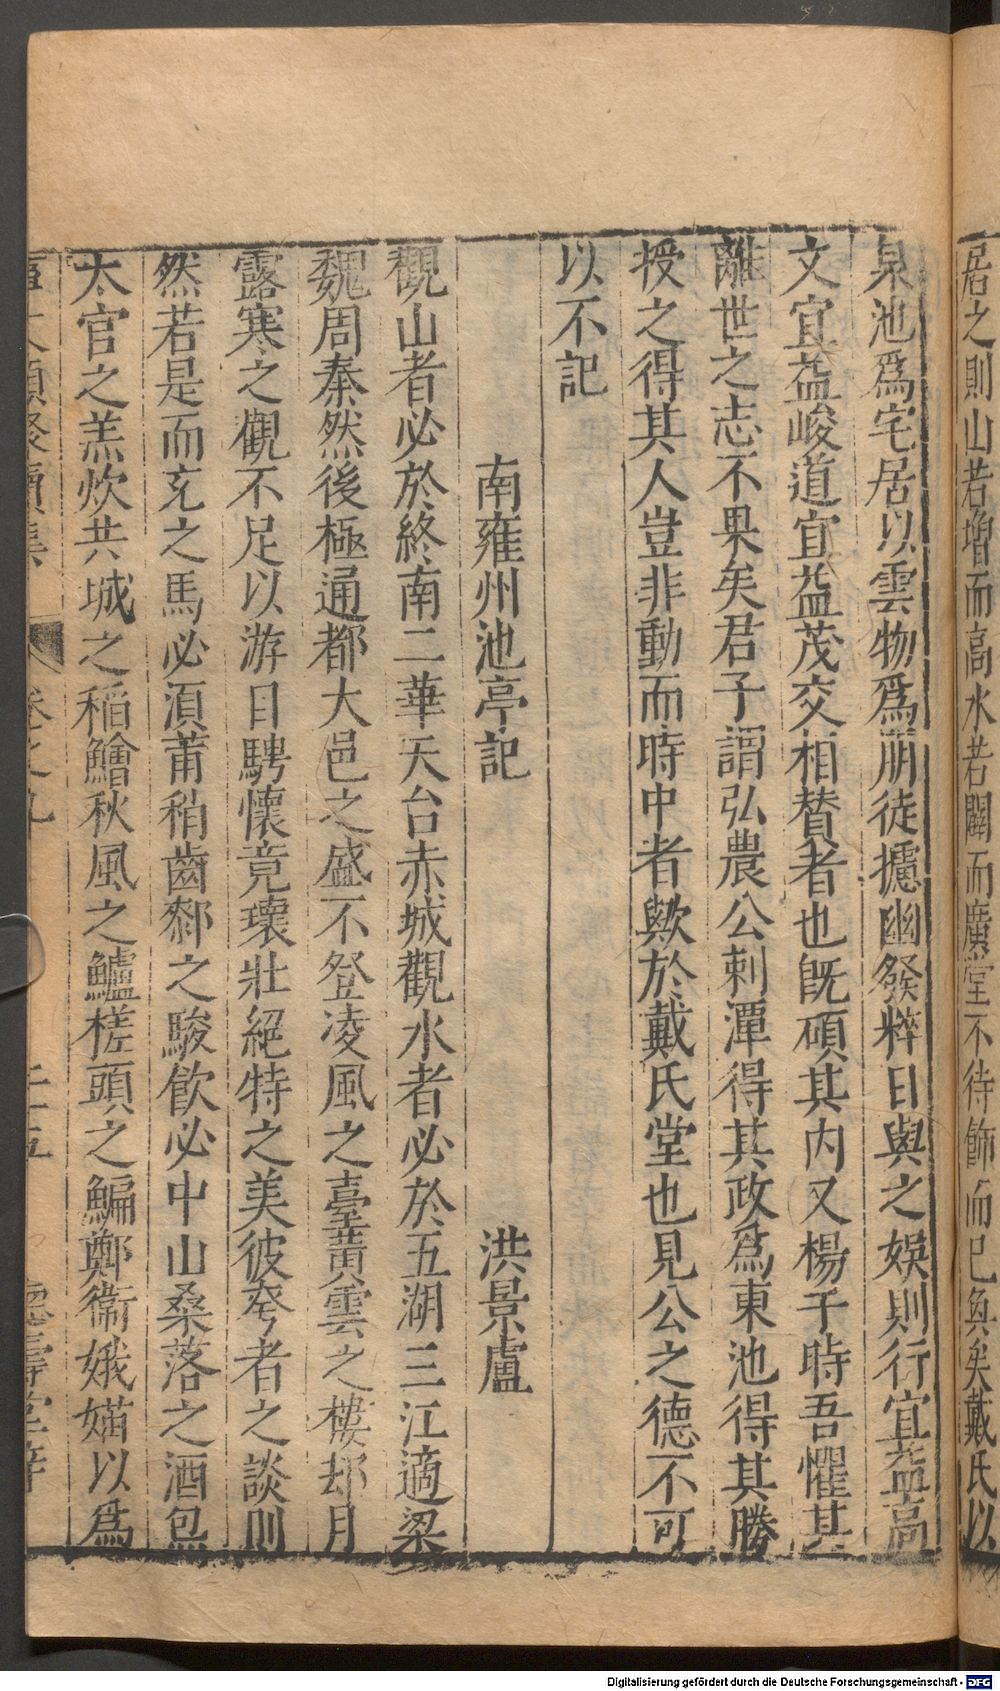 居之則山若增而高水若闢而廣堂不待飾而已奐矣戴氏以
泉池爲宅居以雲物爲朋徒攄幽發粹日與之娛則行宜益高
文宜益峻道宜益茂交相贊者也旣碩其內又楊于時吾懼其
離世之志不果矣君子謂弘農公刺潭得其政爲東池得其勝
授之得其人豈非動而時中者歟於戴氏堂也見公之德不可
以不記
南雍州池亭記　洪景盧
觀山者必於終南二華天台赤城觀水者必於五湖三江適梁
魏周秦然後極通都大邑之盛不登凌風之臺黃雲之樓却月
露寒之觀不足以游目騁懷竟瓌壯絕特之美彼夸者之談則
然若是而充之馬必湏莆稍齒鄰之駿飲必中山桑落之酒包
太官之羔炊共城之稻鱠秋風之鱸槎頭之鯿鄭衞娥媌以爲
事文類聚續集　卷之九　二十五　德壽堂梓
Digitalisierung gefördert durch die Deutsche Forschungsgemeinschaft - DFG